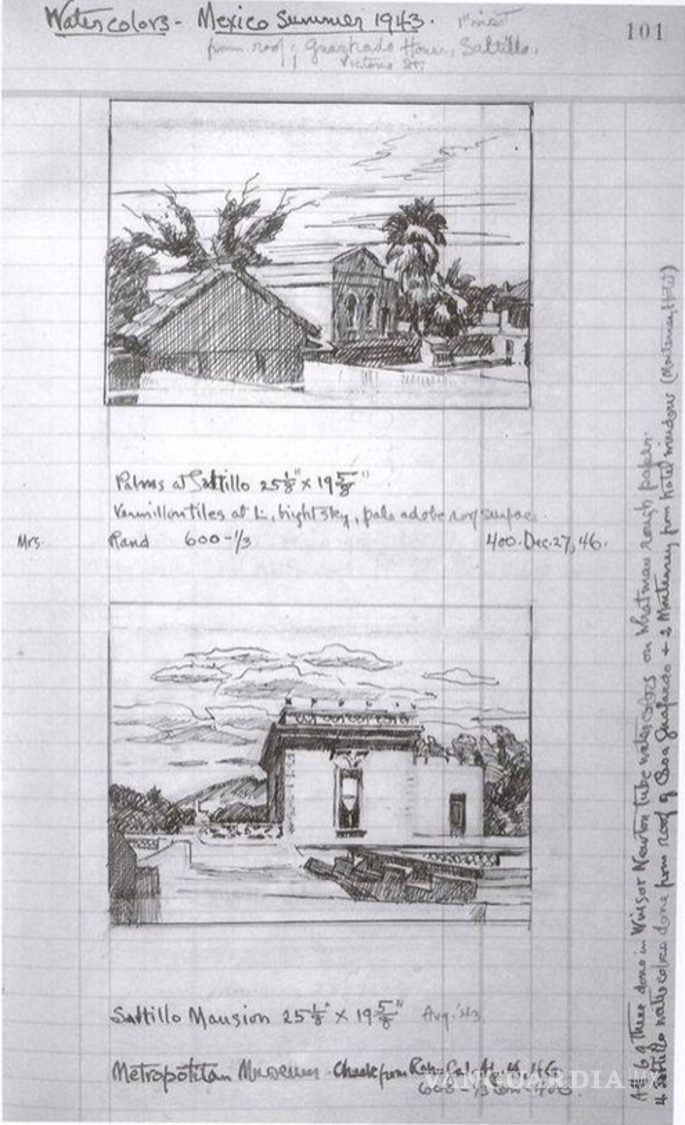 Watercolors - Mexico Summer 1943. 1st visit
101
from roof of Guajardo House, Saltillo.
Victoria St,
Palms at Saltillo 25 1/8" x 19 5/8"
Vermillion tiles at L., bright sky, pale adobe roof surface.
Mrs. Rand 600 - 1/3 400. Dec. 27, 46.
Saltillo Mansion 25 1/8" x 19 5/8" Aug. '43
Metropolitan Museum - Check from Rehn Gal.
600 - 1/3 400.
VANGUARDIA MX
All 6 of these done in Winsor Newton tube water colors on Whatman rough paper.
4 Saltillo watercolors done from roof of Casa Guajardo + 2 Monterrey from hotel windows (Monterrey Hotel)